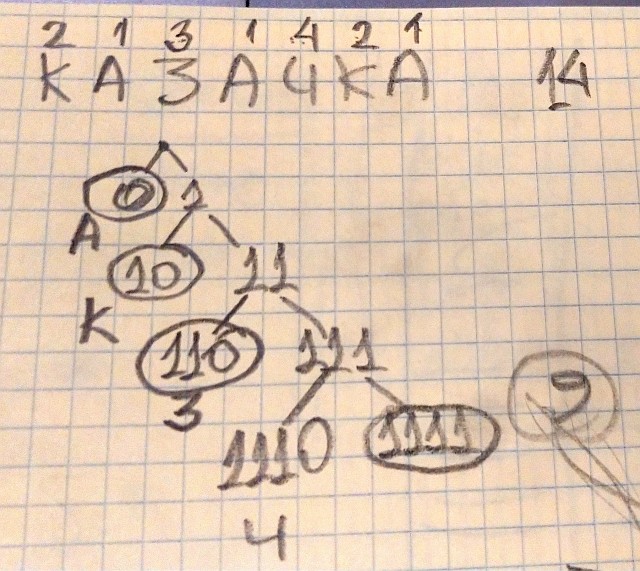 2 1 3 1 4 2 1
КАЗАЧКА 14
0 1
А
10 11
К
110 111
З
1110 1111
Ч